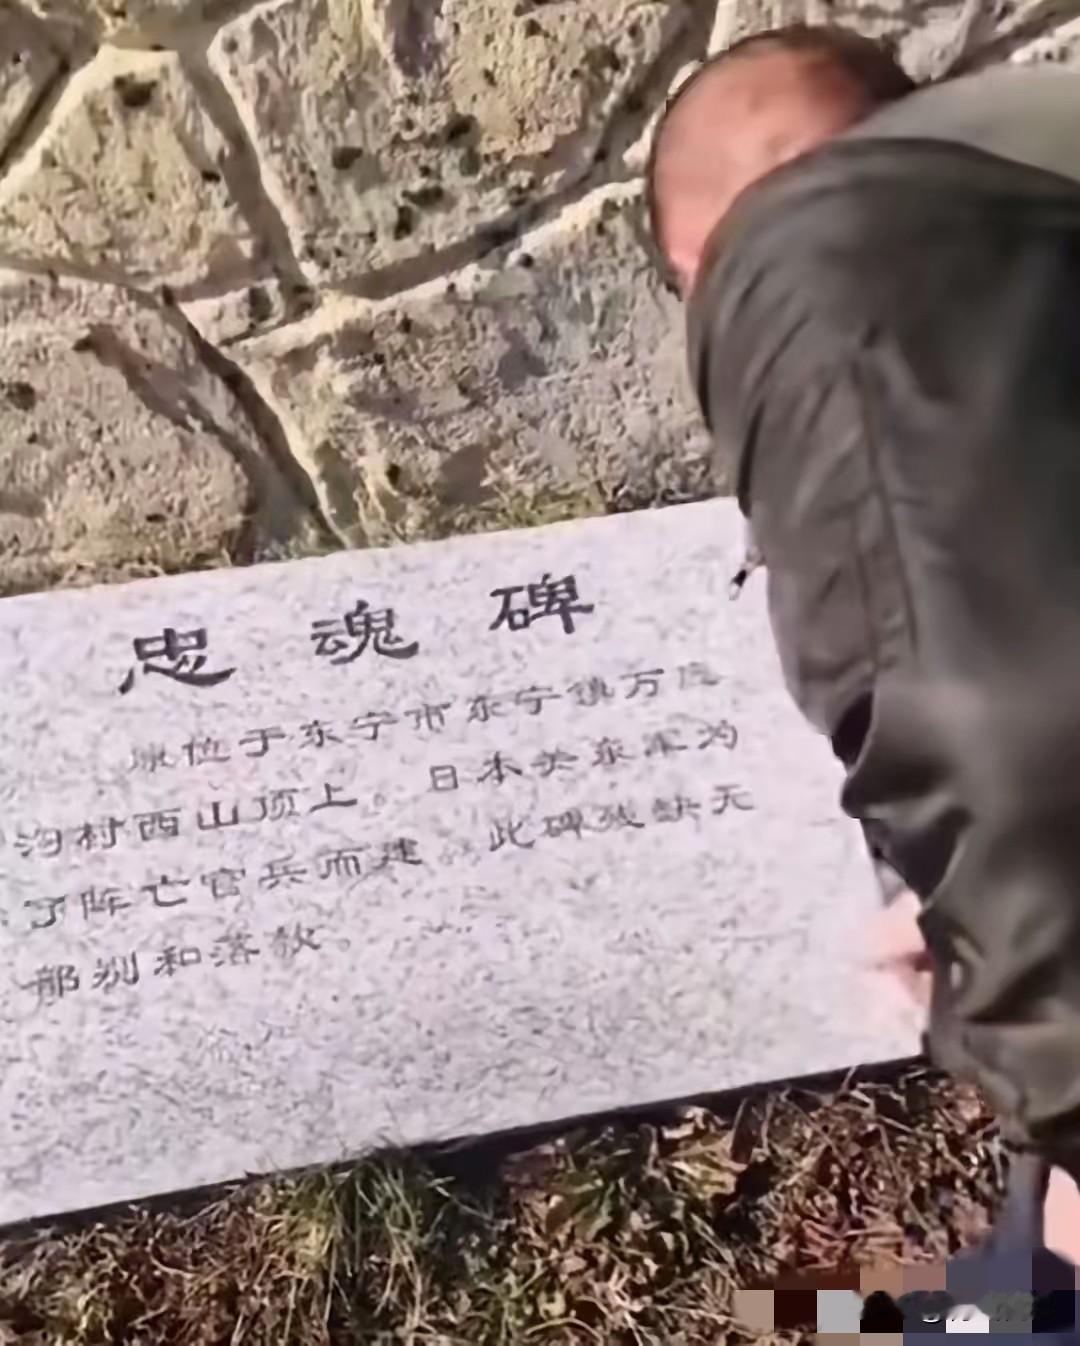 忠魂碑
原位于东宁市东宁镇万
沟村西山顶上。日本关东军为
了阵亡官兵而建 此碑残缺无
部别和落款。